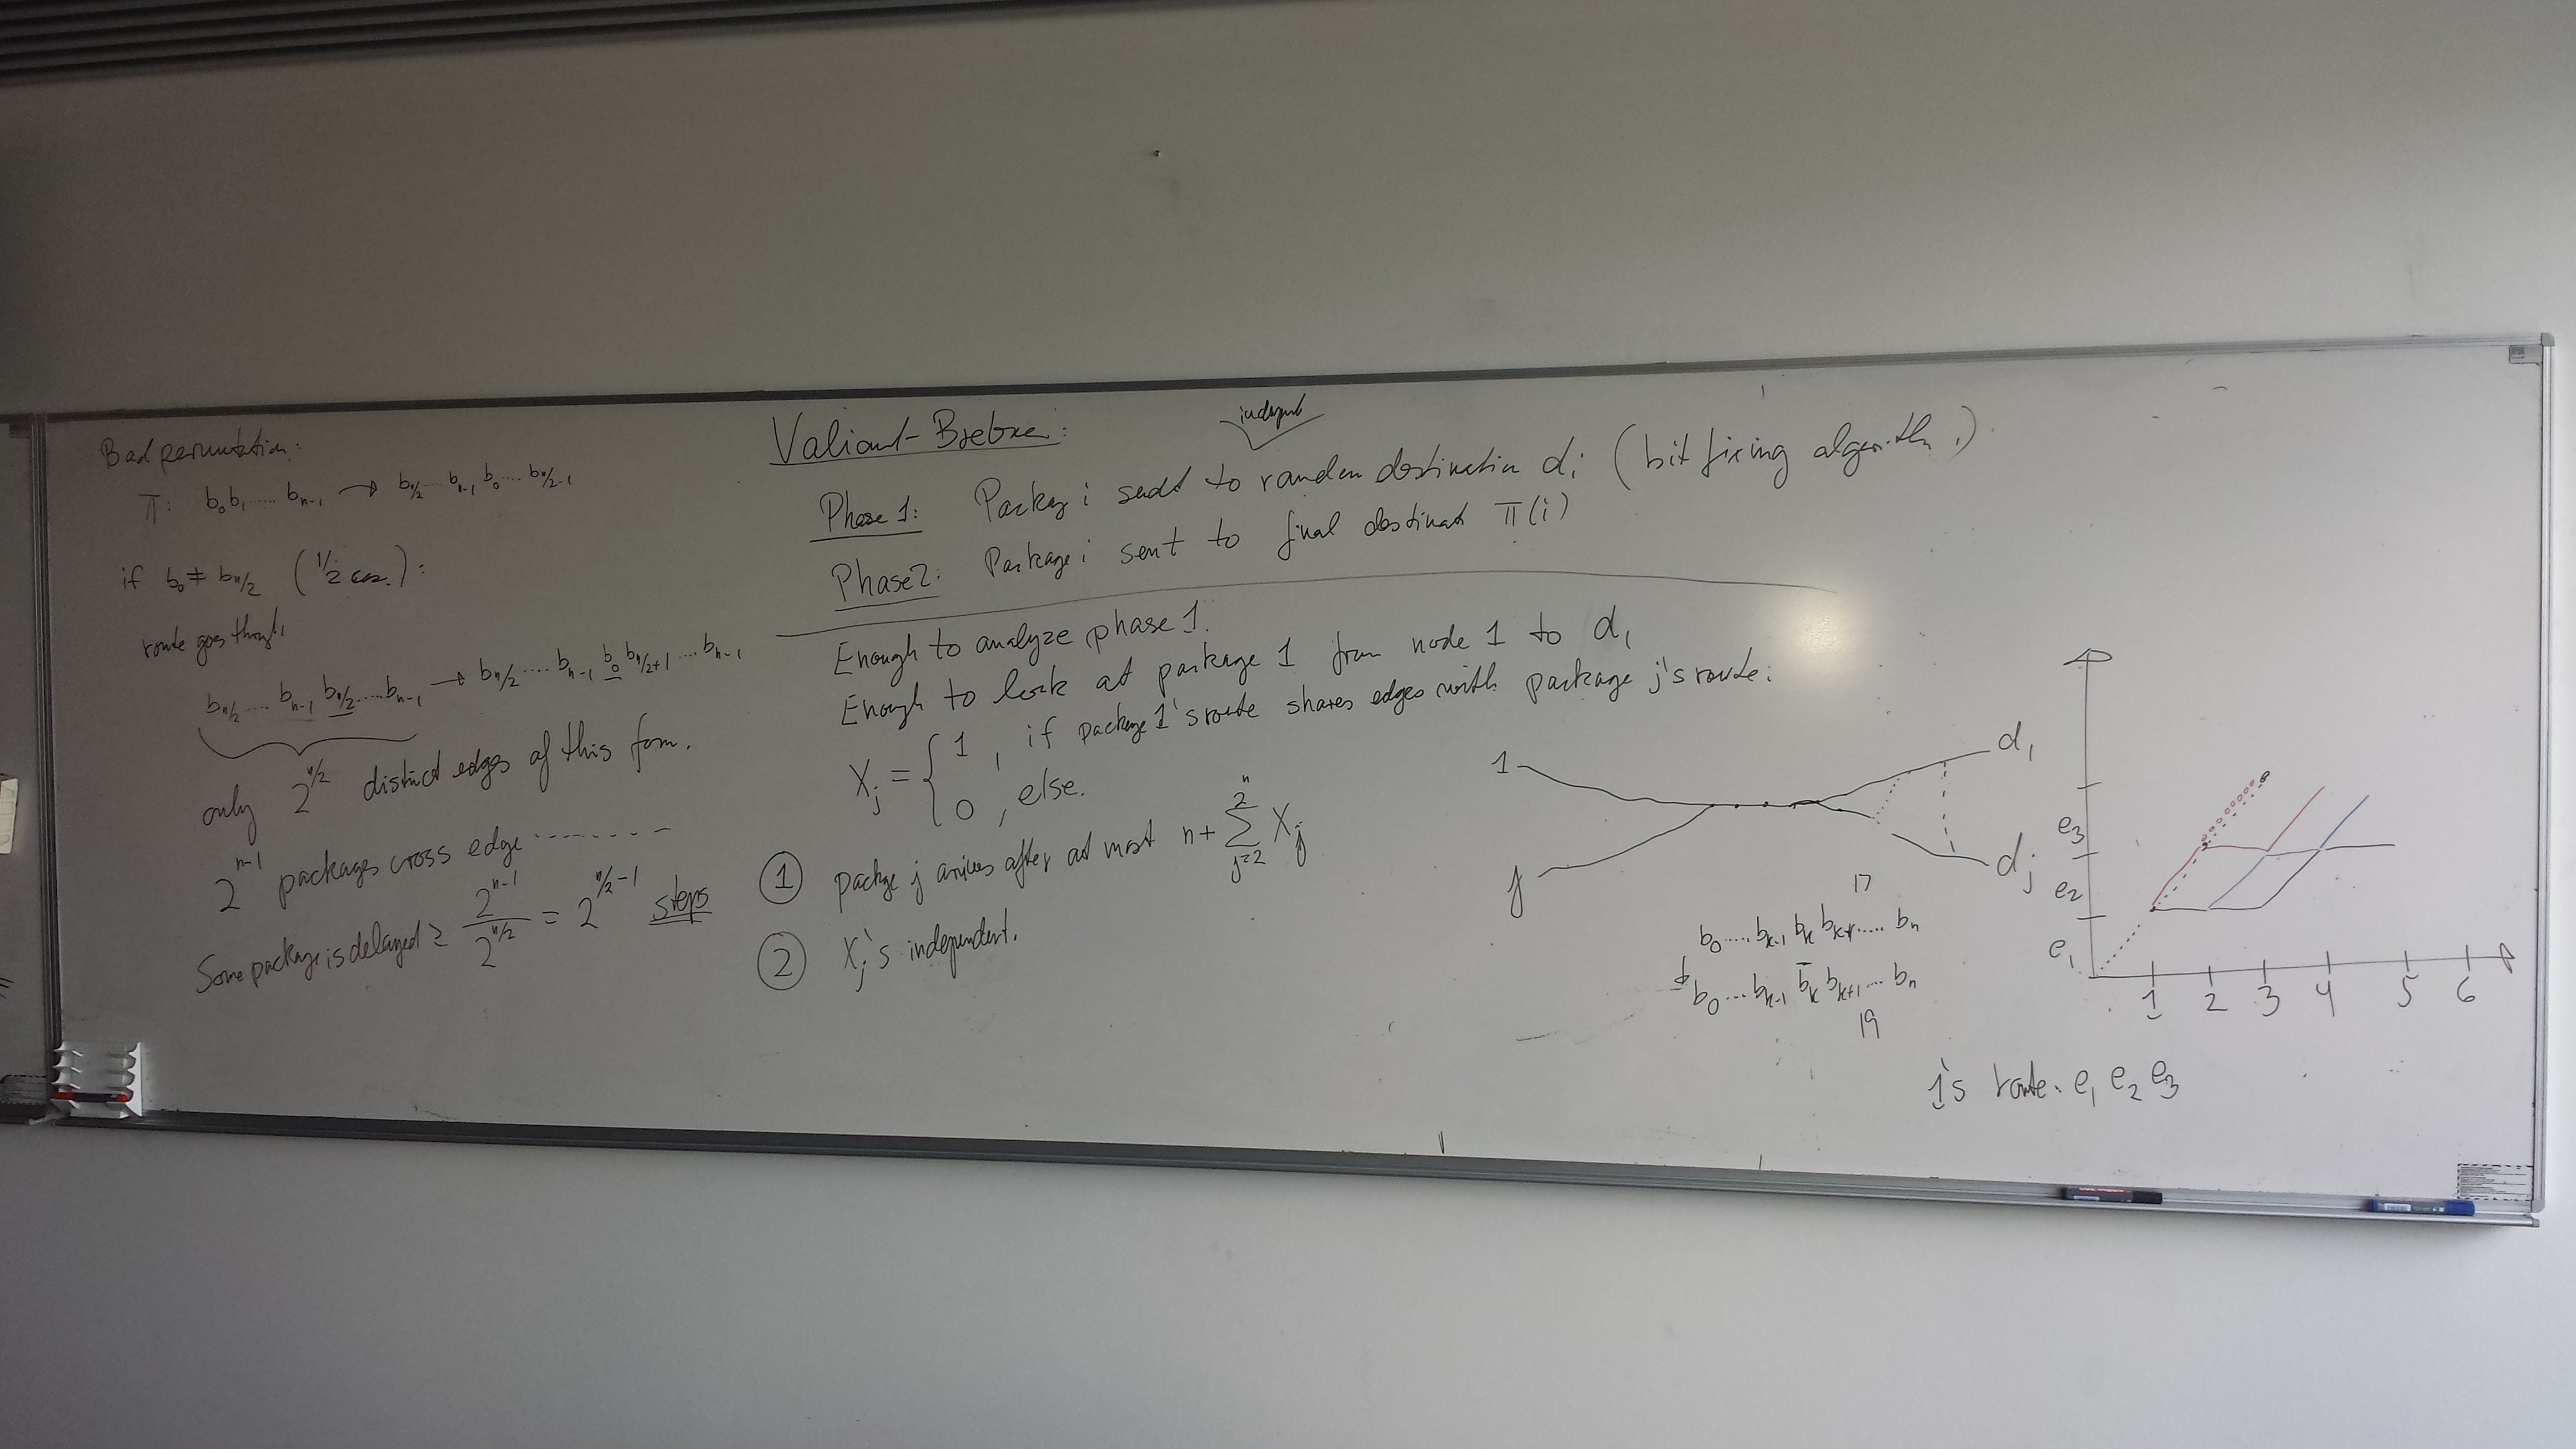 Bad permutation:
π: b₀b₁.....b_{n-1} → b_{n/2}....b_{n-1} b₀....b_{n/2-1}
if b₀ ≠ b_{n/2} (1/2 ):
route goes through
b_{n/2}....b_{n-1} b_{n/2}....b_{n-1} → b_{n/2}....b_{n-1} b₀ b_{n/2+1}....b_{n-1}
only 2^{n/2} distinct edges of this form.
2^{n-1} packages cross edge --------
Some package is delayed ≥ 2^{n-1} / 2^{n/2} = 2^{n/2-1} steps
Valiant-Brebne:
indepnd
Phase 1: Packag i sent to random destination d_i (bit fixing algorithm.)
Phase 2: Package i sent to final destinat π(i)
Enough to analyze phase 1.
Enough to look at package 1 from node 1 to d₁
X_j = { 1, if package 1's route shares edges with package j's route:
0, else.
① package j arrives after at most n + Σ_{j=2}^{2^n} X_j
② X_j's independent.
1
d₁
j
d_j
17
b₀....b_{k-1} b_k b_{k+1}.....b_n
b₀...b_{k-1} b̄_k b_{k+1}....b_n
19
e₃
e₂
e₁
1 2 3 4 5 6
1's route: e₁ e₂ e₃